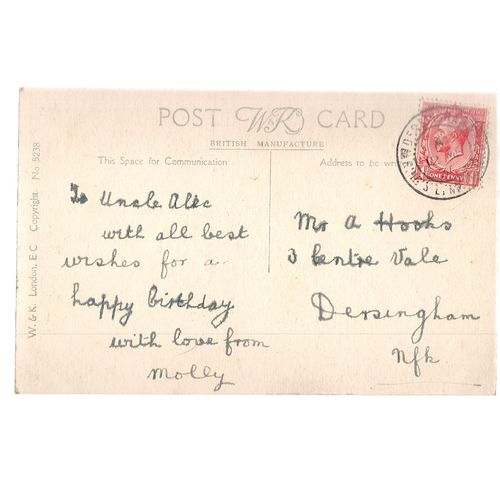 POST W&K CARD
BRITISH MANUFACTURE
This Space for Communication
Address to be
W. & K. London, E C Copyright. No 5238
To Uncle Alec
with all best
wishes for a
happy birthday
with love from
Molly
Mr A Hooks
3 Centre Vale
Dersingham
Nfk
ONE PENNY